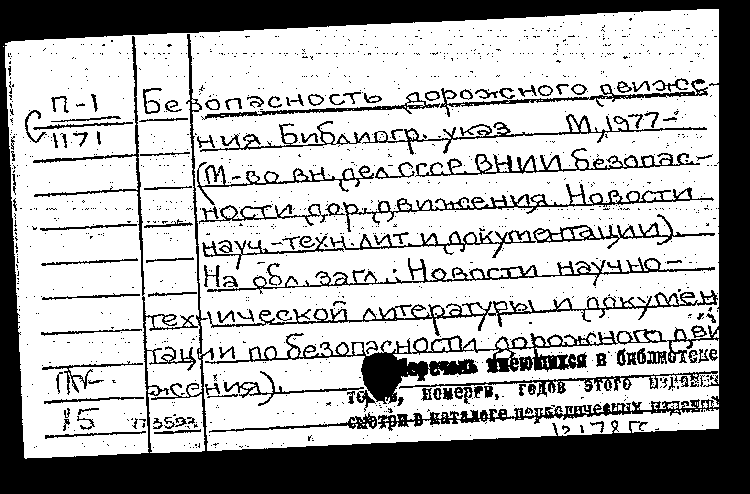 П-1 Безопасность дорожного движе-
1171 ния. Библиогр. указ. М., 1977-
(М-во вн. дел СССР. ВНИИ безопас-
ности дор. движения. Новости
науч.-техн. лит. и документации).
На обл. загл.: Новости научно-
технической литературы и докумен
тации по безопасности дорожного дви
жения).
Перечень имеющихся в библиотеке
томов, номеров, годов этого издания
смотри в каталоге периодических изданий
15 773592